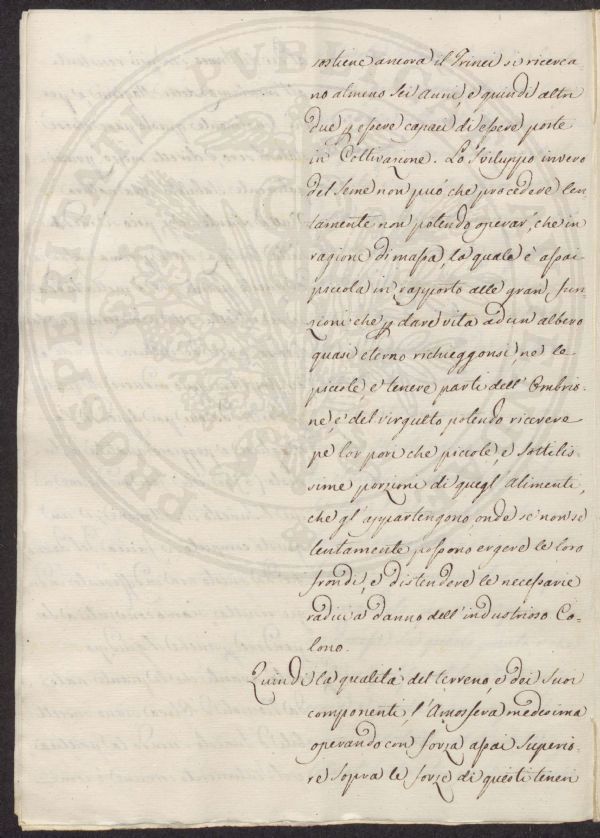 sostiene ancora il Trinci si ricerca-
no almeno sei anni, e quindi altri
due p essere capaci di essere poste
in Coltivazione. Lo Sviluppo invero
del Seme non può che procedere len-
tamente non potendo operar, che in
ragione di massa, la quale è assai
piccola in rapporto alle gran fun-
zioni che p dare vita ad un albero
quasi eterno richieggonsi, ne le
piccole, e tenere parti dell' Embrio-
ne, e del virgulto potendo ricevere
pe lor pori che piccole, e sottilis-
sime porzioni di quegl' alimenti,
che gl' appartengono, onde se non se
lentamente possono ergere le loro
frondi, e distendere le necessarie
radici a danno dell' industrioso Co-
lono.
Quindi la qualità del terreno, e dei suoi
componenti, l' Atmosfera medesima
operando con forza assai superio-
re sopra le forze di questi teneri
PROSPERITATI PUBLICAE